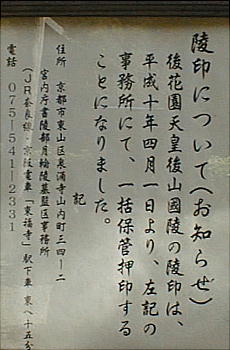 陵印について(お知らせ)
後花園天皇後山國陵の陵印は、
平成十年四月一日より、左記の
事務所にて、一括保管押印する
ことになりました。
記
住所 京都市東山区泉涌寺山内町三四ー二
宮内庁書陵部月輪陵墓監区事務所
電話 075ー541ー2331
(JR奈良線・京阪電車「東福寺」駅下車 東へ十五分